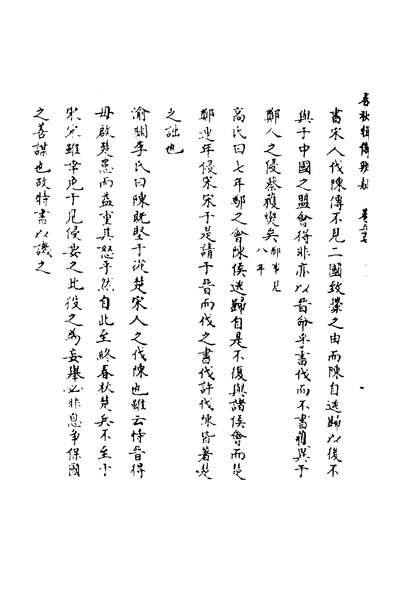 春秋輯傳辨疑 卷五五
書宋人伐陳傳不見二國致釁之由而陳自逃歸以後不
與于中國之盟會得非亦以晉命乎書伐而不書獲異乎
鄭人之侵蔡獲燮矣鄭事見八年
高氏曰七年鄬之會陳侯逃歸自是不復與諸侯會而楚
鄭連年侵宋宋于是請于晉而伐之書伐許伐陳皆著楚
之詘也
渝關李氏曰陳既堅于從楚宋人之伐陳也雖云恃晉得
毋啟楚患而益重其怒乎然自此至終春秋楚兵不至于
宋宋雖幸免于見侵要之此役之為妄舉必非息爭保國
之善謀也故特書以譏之